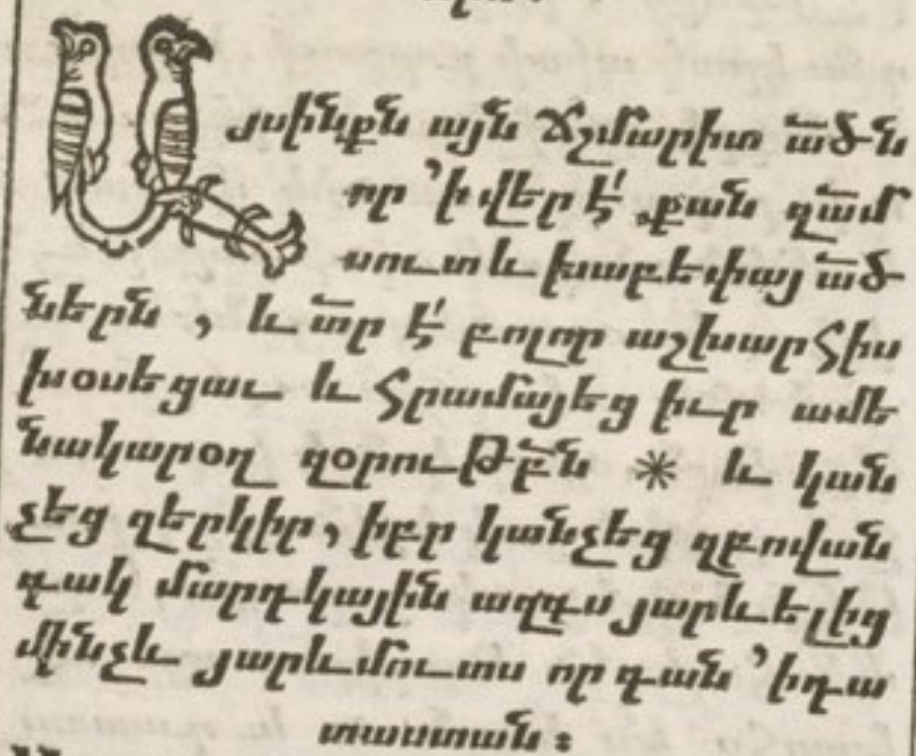 Այսինքն այն ճշմարիտ ա̅ծ̅ն
որ ՚ի վեր է՛ քան զա̅մ̅
սուտ և խաբեփայ ա̅ծ̅
ներն , և տ̅ր̅ է՛ բոլոր աշխարհիս
խօսեցաւ և հրամայեց իւր ամե
նակարօղ զօրութբ̅ն * և կան
չեց զերկիր, իբր կանչեց զբովան
դակ մարդկային ազգս յարևելից
մինչև յարևմուտս որ գան ՚ի դա
տաստան :